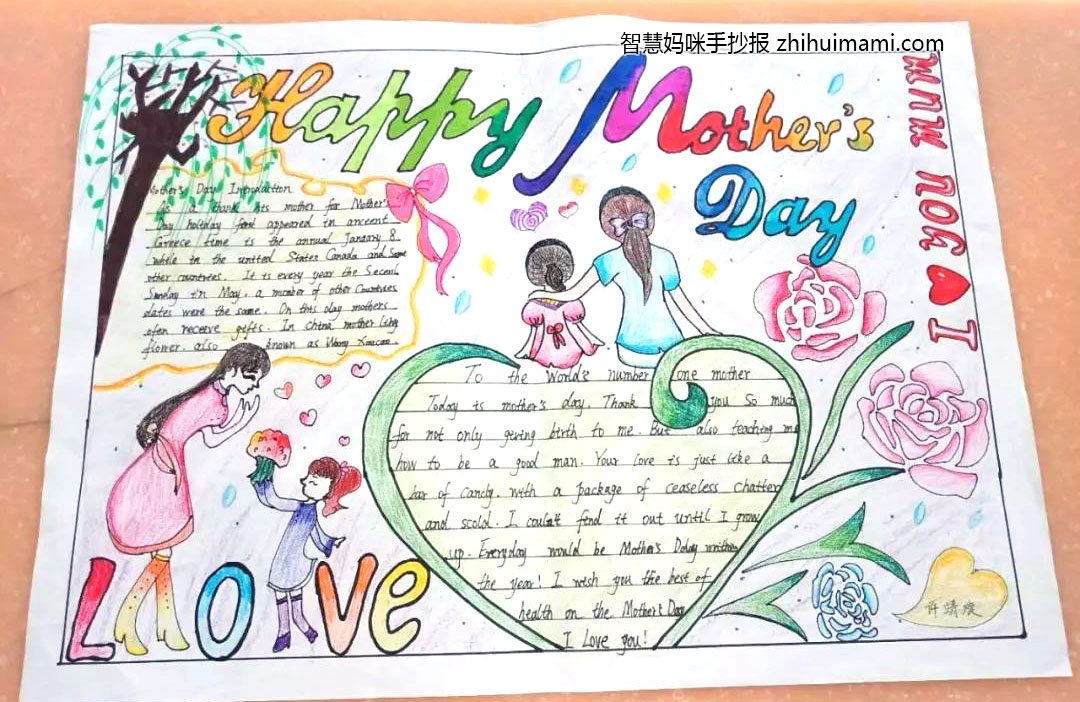 智慧妈咪手抄报 zhihuimami.com
Happy Mother's
Day
I ♥ YOU MUM
Mother's Day Introduction
As a thank his mother for Mother's
Day holiday first appeared in ancent
Greece time is the annual January 8
while in the unitied States Canada and Some
other countrees. It is every year the Secenl
Sunday in May. a mumber of other Countrees
dates were the same. On this day mothers
ofen receive gifts. In China mother lily
flower. also known as
To the World's number one mother
Today is mother's day. Thank you So much
for not only gering birth to me. But also teaching me
how to be a good man. Your love is just like a
bar of candy. with a package of ceaseless chatter
and scold. I could't find it out until I grow
up. Everyday would be Mother's Day
the year! I wish you the best of
health on the Mother's Day
I Love you!
Love
许靖